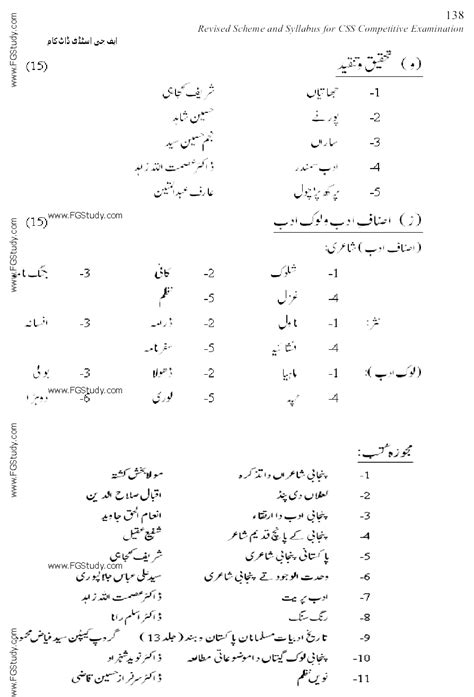 138
Revised Scheme and Syllabus for CSS Competitive Examination
ایف جی اسٹڈی ڈاٹ کام
(و) تحقیق و تنقید (15)
1- جھاتیاں شریف کنجاہی
2- پورنے حسین شاہد
3- ساراں نجم حسین سید
4- ادب سمندر ڈاکٹر عصمت اللہ زاہد
5- پرکھ پڑچول عارف عبدالمتین
(ز) اصناف ادب و لوک ادب www.FGStudy.com (15)
(اصناف ادب) شاعری:
1- شلوک 2- کافی 3- جنگ نامہ
4- غزل 5- نظم
نثر: 1- ناول 2- ڈرامہ 3- افسانہ
4- انشائیہ 5- سفرنامہ
(لوک ادب): 1- ماہیا 2- ڈھولا 3- بولی
4- ٹپہ 5- لوری 6- دوہڑا www.FGStudy.com
مجوزہ کتب:
1- پنجابی شاعراں دا تذکرہ مولا بخش کشتہ
2- لعلاں دی پنڈ اقبال صلاح الدین
3- پنجابی ادب دا ارتقاء انعام الحق جاوید
4- پنجابی کے پانچ قدیم شاعر شفیع عقیل
5- پاکستانی پنجابی شاعری شریف کنجاہی
www.FGStudy.com
6- وحدت الوجود تے پنجابی شاعری سید علی عباس جلالپوری
7- ادب پریت ڈاکٹر عصمت اللہ زاہد
8- رنگ سنگ ڈاکٹر اسلم رانا
9- تاریخ ادبیات مسلمانان پاکستان و ہند (جلد 13) گروپ کیپٹن سید فیاض محمود
10- پنجابی لوک گیتاں دا موضوعاتی مطالعہ ڈاکٹر نوید شہزاد
11- نویں نظم ڈاکٹر سرفراز حسین قاضی
www.FGStudy.com
www.FGStudy.com
www.FGStudy.com
www.FGStudy.com